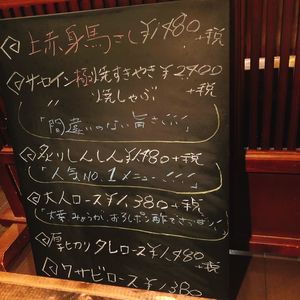 上赤身馬さし¥1,480
+税
サーロイン極焼すきやき¥2,900
焼しゃぶ +税
「間違いのない旨さ!!」
炙りしんしん¥1,480+税
「人気NO.1メニュー!!!」
大人ロース¥1,380+税
みょうが、おろしポン酢でさっぱり
厚切りタレロース¥1,480
+税
ワサビロース¥1,380